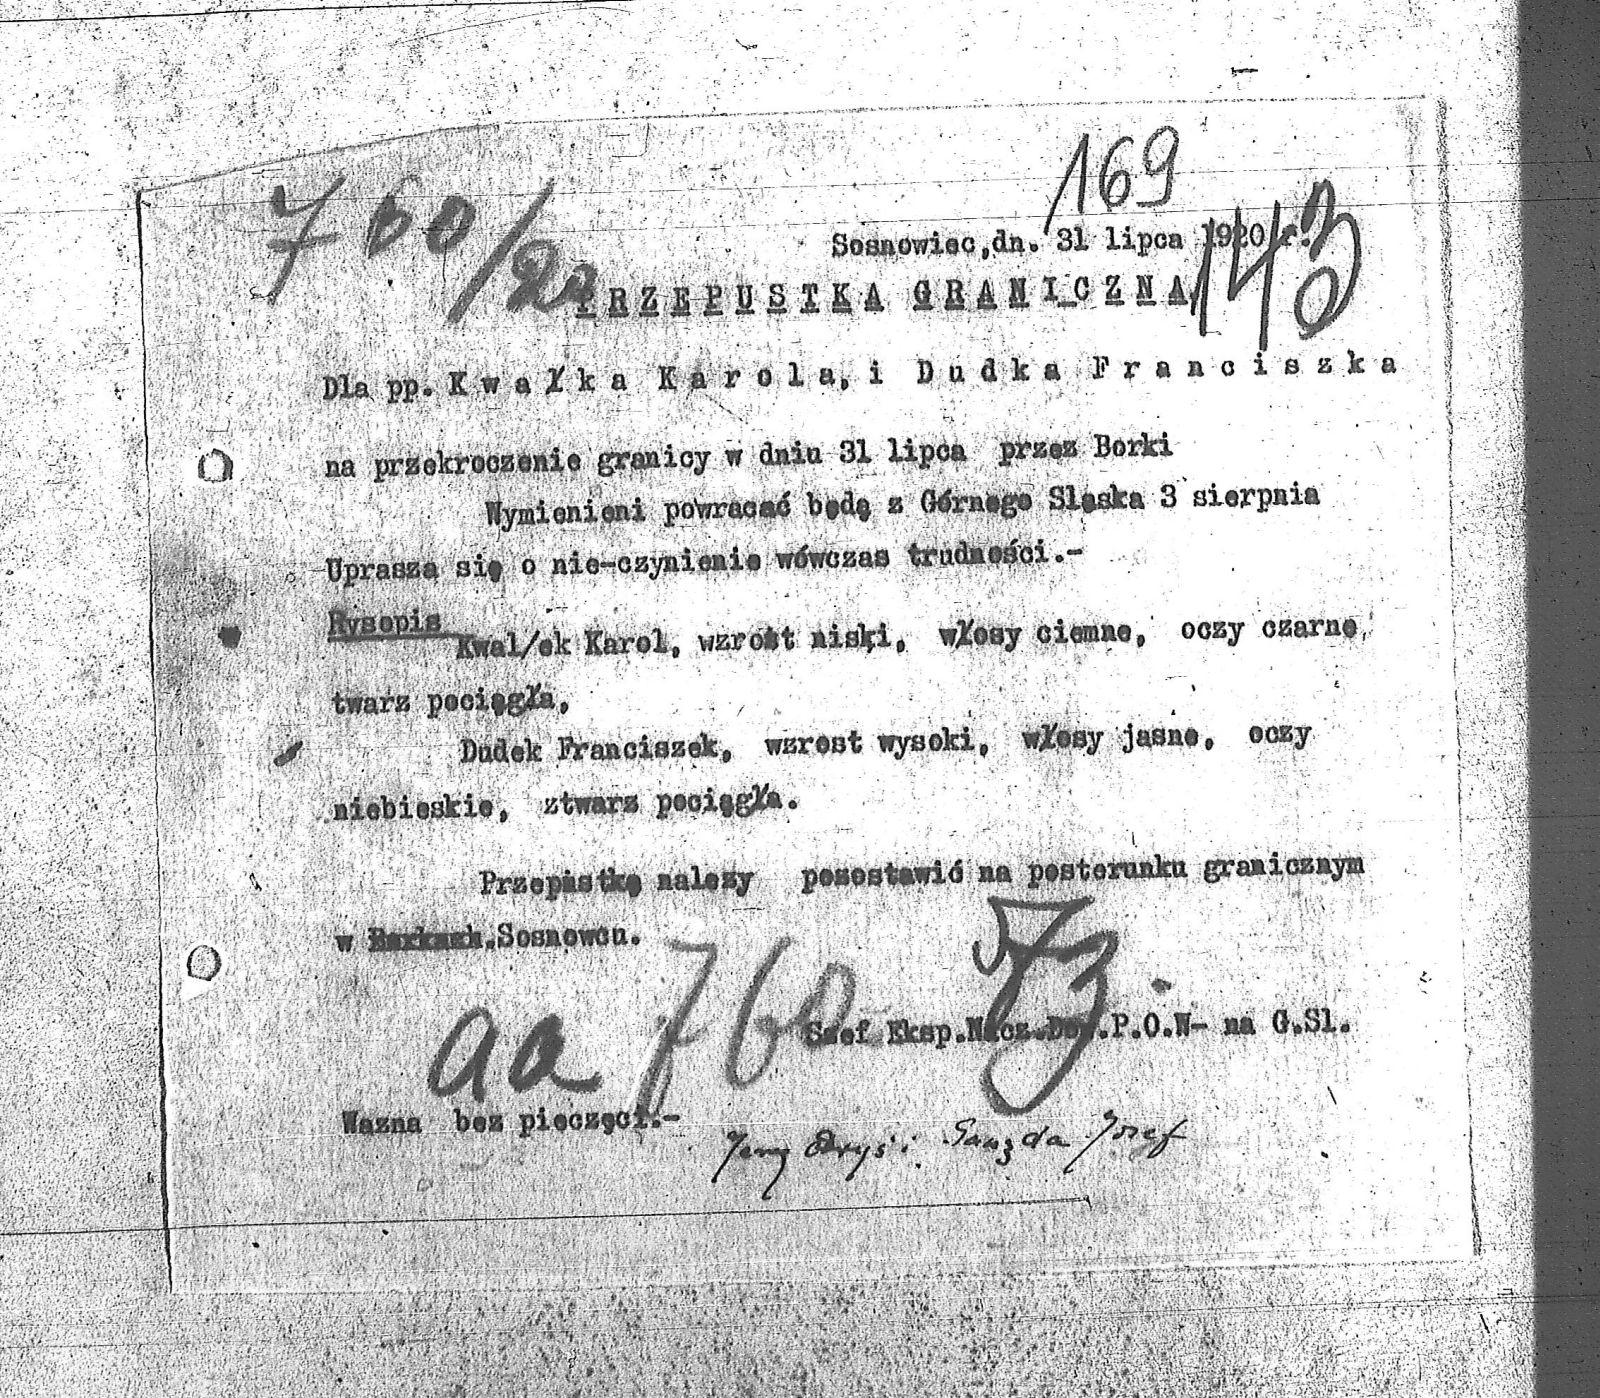 169
760/20
143
Sosnowiec,dn. 31 lipca 1920 r.
PRZEPUSTKA GRANICZNA
Dla pp. Kwałka Karola, i Dudka Franciszka
na przekroczenie granicy w dniu 31 lipca przez Borki
Wymienieni powracać będę z Górnego Sląska 3 sierpnia
Uprasza się o nie-czynienie wówczas trudności.-
Rysopis
Kwal/ek Karol, wzrost niski, włosy ciemne, oczy czarne,
twarz pociągła,
Dudek Franciszek, wzrost wysoki, włosy jasne, oczy
niebieskie, ztwarz pociągła.
Przepustkę nalezy pozostawić na posterunku granicznym
w Sosnowcu.
aa 760
Szef Eksp.Nacz.Dow.P.O.W- na G.Sl.
Wazna bez pieczęci.-
Józef